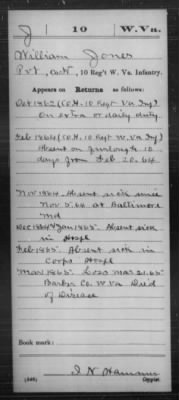 J 10 W.Va.
William Jones
Pvt, Co. H, 10 Reg't W. Va. Infantry.
Appears on Returns as follows:
Oct 1862 (Co. H, 10 Regt Va Inf)
On extra or daily duty.
Feb 1864 (Co. H, 10 Regt W. Va Inf)
Absent on furlough 10
days from Feb 20. 64
Nov 1864. Absent sick since
Nov 5. 64 at Baltimore
Md
Dec 1864 & Jan 1865. Absent sick
in Hospl
Feb 1865. Absent sick in
Corps Hospl
Mar 1865. Loss Mar 21. 65
Barber Co. W. Va Died
of Disease
Book mark:
(546)
Copyist.